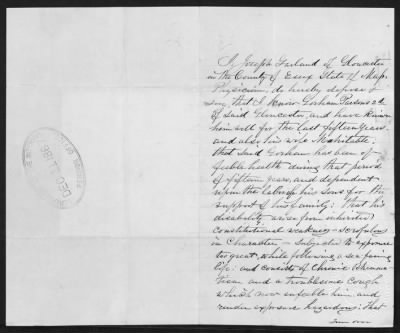 I, Joseph Garland of Gloucester
in the County of Essex State of Mass.
Physician, do hereby depose &
say, that I know Gorham Parsons 2d
of said Gloucester, and have known
him well for the last fifteen years.
and also his wife Mehitable;
that said Gorham has been of
feeble health during that period
of fifteen years, and dependent
upon the labor of his sons for the
support of his family: that his
disability arises from inherited
constitutional weakness - scrofulous
in character - subjected to exposure
too great, while following a sea faring
life: and consists of chronic Rheuma-
tism and a troublesome cough
which now enfeeble him, and
render exposure hazardous; that
turn over
DEC